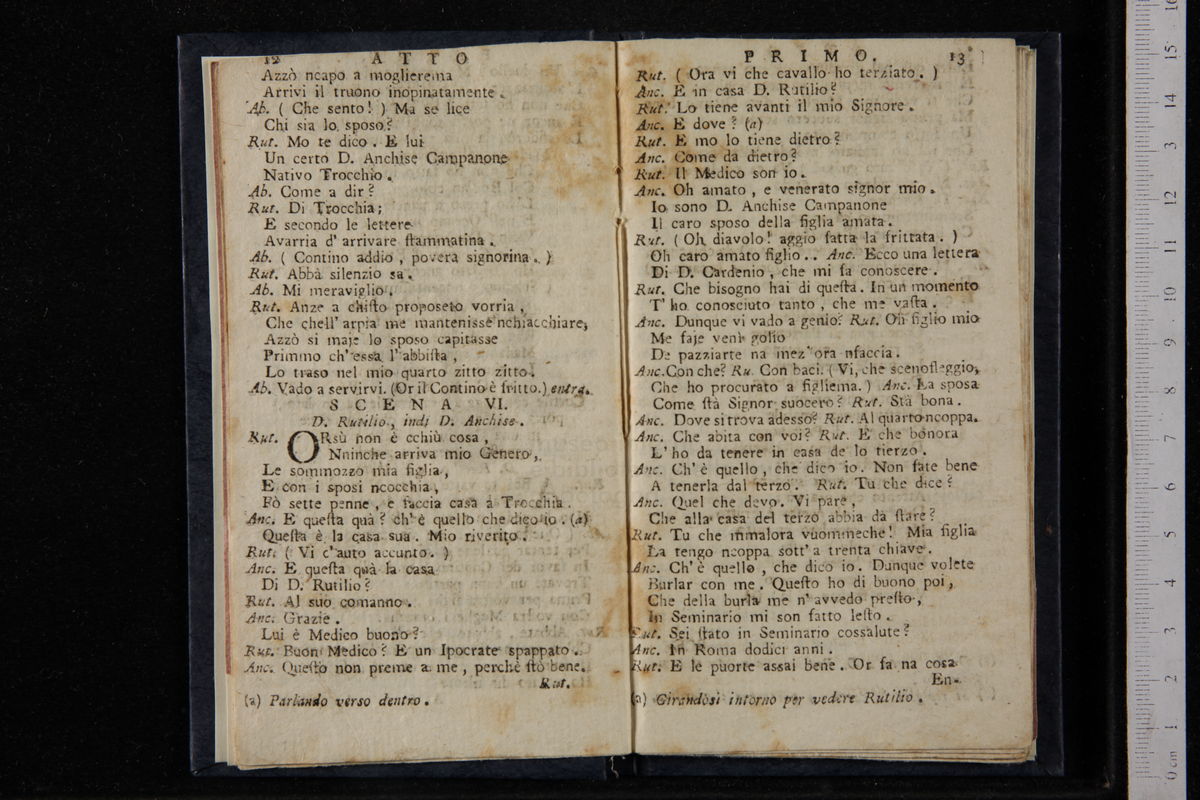 12 ATTO
Azzò ncapo a moglierema
Arrivi il truono inopinatamente.
Ab. ( Che sento! ) Ma se lice
Chi sia lo sposo?
Rut. Mo te dico. E lui
Un certo D. Anchise Campanone
Nativo Trocchio.
Ab. Come a dir?
Rut. Di Trocchia;
E secondo le lettere
Avarria d' arrivare ſtammatina.
Ab. ( Contino addio, povera signorina. )
Rut. Abbà silenzio sa.
Ab. Mi meraviglio.
Rut. Anze a chiſto proposeto vorria,
Che chell' arpia me mantenisse nchiacchiare,
Azzò si maje lo sposo capitasse
Primmo ch' essa l' abbiſta,
Lo traso nel mio quarto zitto zitto.
Ab. Vado a servirvi. (Or il Contino è fritto.) entra.
SCENA VI.
D. Rutilio, indi D. Anchise.
Rut. ORsù non è cchiù cosa,
Nninche arriva mio Genero,
Le sommozzo mia figlia,
E con i sposi ncocchia,
Fò sette penne, e faccia casa a Trocchia.
Anc. E queſta quà? ch' è quello che dico io. (a)
Queſta è la casa sua. Mio riverito.
Rut. ( Vi c' auto accunto. )
Anc. E queſta quà la casa
Di D. Rutilio?
Rut. Al suo comanno.
Anc. Grazie.
Lui è Medico buono?
Rut. Buon Medico? E un Ipocrate spappato.
Anc. Queſto non preme a me, perchè ſtò bene.
Rut.
(a) Parlando verso dentro.
PRIMO. 13
Rut. ( Ora vi che cavallo ho terziato. )
Anc. E in casa D. Rutilio?
Rut. Lo tiene avanti il mio Signore.
Anc. E dove? (a)
Rut. E mo lo tiene dietro?
Anc. Come da dietro?
Rut. Il Medico son io.
Anc. Oh amato, e venerato signor mio.
Io sono D. Anchise Campanone
Il caro sposo della figlia amata.
Rut. ( Oh diavolo! aggio fatta la frittata. )
Oh caro amato figlio.. Anc. Ecco una lettera
Di D. Cardenio, che mi fa conoscere.
Rut. Che bisogno hai di queſta. In un momento
T' ho conosciuto tanto, che me vaſta.
Anc. Dunque vi vado a genio? Rut. Oh figlio mio
Me faje venì golio
De pazziarte na mez' ora nfaccia.
Anc. Con che? Ru. Con baci. ( Vi, che scenofleggio,
Che ho procurato a figliema. ) Anc. La sposa
Come ſtà Signor suocero? Rut. Stà bona.
Anc. Dove si trova adesso? Rut. Al quarto ncoppa.
Anc. Che abita con voi? Rut. E che bonora
L' ho da tenere in casa de lo tierzo.
Anc. Ch' è quello, che dico io. Non fate bene
A tenerla dal terzo. Rut. Tu che dice?
Anc. Quel che devo. Vi pare,
Che alla casa del terzo abbia da ſtare?
Rut. Tu che mmalora vuommeche! Mia figlia
La tengo ncoppa sott' a trenta chiave.
Anc. Ch' è quello, che dico io. Dunque volete
Burlar con me. Queſto ho di buono poi,
Che della burla me n' avvedo preſto,
In Seminario mi son fatto leſto.
Rut. Sei ſtato in Seminario cossalute?
Anc. In Roma dodici anni.
Rut. E le puorte assai bene. Or fa na cosa
En-
(a) Girandosi intorno per vedere Rutilio.